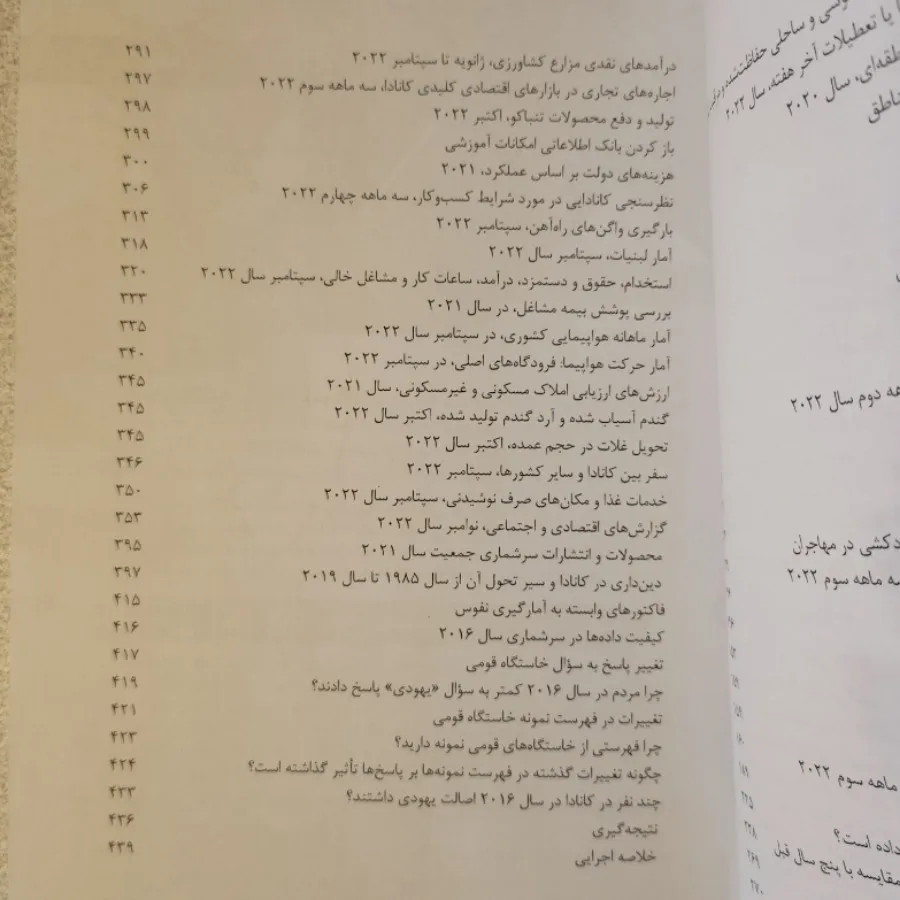 و ساحلی حفاظت‌شده
یا تعطیلات آخر هفته، سال ۲۰۲۲
سال ۲۰۲۰
دوم سال ۲۰۲۲
در مهاجران
سه ماهه سوم ۲۰۲۲
ماهه سوم ۲۰۲۲
داده است؟
مقایسه با پنج سال قبل
۱۵۹
۱۶۰
۱۸۹
۲۲۵
۲۳۸
۲۶۹
۲۷۰
درآمدهای نقدی مزارع کشاورزی، ژانویه تا سپتامبر ۲۰۲۲ ۲۹۱
اجاره‌های تجاری در بازارهای اقتصادی کلیدی کانادا، سه ماهه سوم ۲۰۲۲ ۲۹۷
تولید و دفع محصولات تنباکو، اکتبر ۲۰۲۲ ۲۹۸
باز کردن بانک اطلاعاتی امکانات آموزشی ۲۹۹
هزینه‌های دولت بر اساس عملکرد، ۲۰۲۱ ۳۰۰
نظرسنجی کانادایی در مورد شرایط کسب‌وکار، سه ماهه چهارم ۲۰۲۲ ۳۰۶
بارگیری واگن‌های راه‌آهن، سپتامبر ۲۰۲۲ ۳۱۳
آمار لبنیات، سپتامبر سال ۲۰۲۲ ۳۱۸
استخدام، حقوق و دستمزد، درآمد، ساعات کار و مشاغل خالی، سپتامبر سال ۲۰۲۲ ۳۲۰
بررسی پوشش بیمه مشاغل، در سال ۲۰۲۱ ۳۳۳
آمار ماهانه هواپیمایی کشوری، در سپتامبر سال ۲۰۲۲ ۳۳۵
آمار حرکت هواپیما: فرودگاه‌های اصلی، در سپتامبر ۲۰۲۲ ۳۴۰
ارزش‌های ارزیابی املاک مسکونی و غیرمسکونی، سال ۲۰۲۱ ۳۴۵
گندم آسیاب شده و آرد گندم تولید شده، اکتبر سال ۲۰۲۲ ۳۴۵
تحویل غلات در حجم عمده، اکتبر سال ۲۰۲۲ ۳۴۵
سفر بین کانادا و سایر کشورها، سپتامبر ۲۰۲۲ ۳۴۶
خدمات غذا و مکان‌های صرف نوشیدنی، سپتامبر سال ۲۰۲۲ ۳۵۰
گزارش‌های اقتصادی و اجتماعی، نوامبر سال ۲۰۲۲ ۳۵۳
محصولات و انتشارات سرشماری جمعیت سال ۲۰۲۱ ۳۹۵
دین‌داری در کانادا و سیر تحول آن از سال ۱۹۸۵ تا سال ۲۰۱۹ ۳۹۷
فاکتورهای وابسته به آمارگیری نفوس ۴۱۵
کیفیت داده‌ها در سرشماری سال ۲۰۱۶ ۴۱۶
تغییر پاسخ به سؤال خاستگاه قومی ۴۱۷
چرا مردم در سال ۲۰۱۶ کمتر به سؤال «یهودی» پاسخ دادند؟ ۴۱۹
تغییرات در فهرست نمونه خاستگاه قومی ۴۲۱
چرا فهرستی از خاستگاه‌های قومی نمونه دارید؟ ۴۲۳
چگونه تغییرات گذشته در فهرست نمونه‌ها بر پاسخ‌ها تأثیر گذاشته است؟ ۴۲۴
چند نفر در کانادا در سال ۲۰۱۶ اصالت یهودی داشتند؟ ۴۳۳
نتیجه‌گیری ۴۳۶
خلاصه اجرایی ۴۳۹